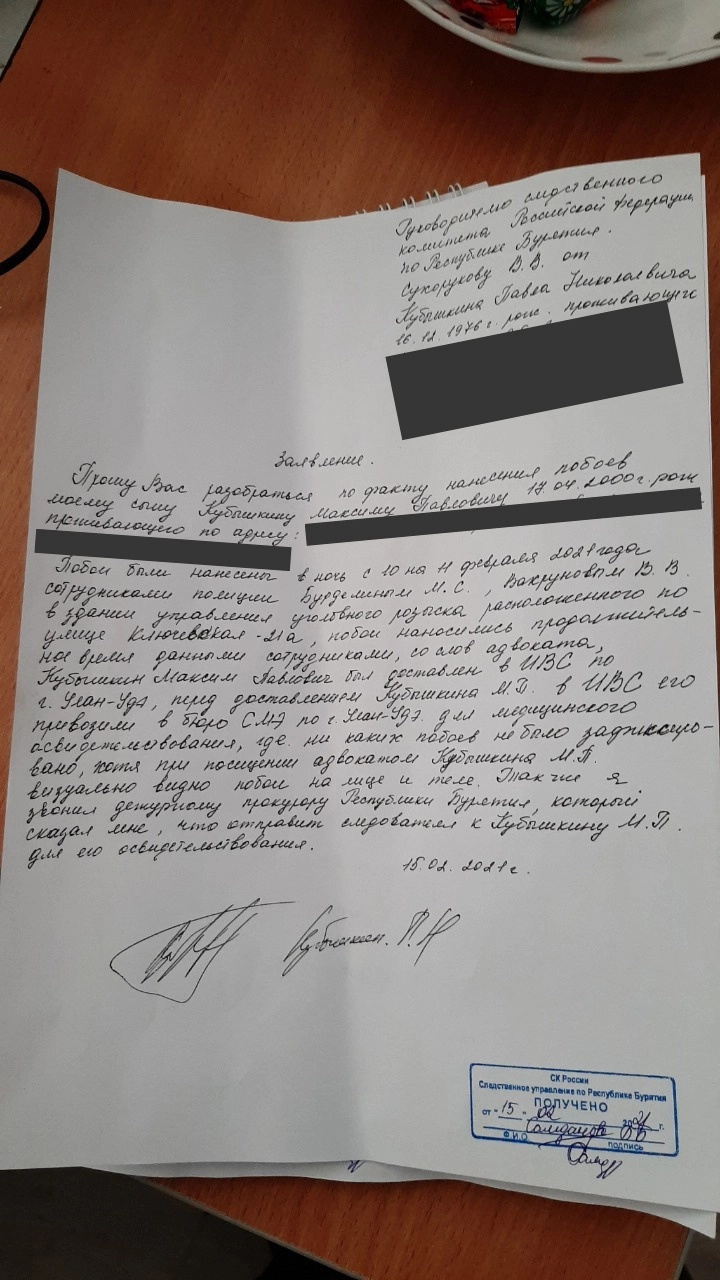 Руководителю следственного
комитета Российской Федерации
по Республике Бурятия.
Сухорукову В.В. от
Кубышкина Павла Николаевича
16.12.1976 г. рож. проживающего
Заявление.
Прошу Вас разобраться по факту нанесения побоев
моему сыну Кубышкину Максиму Павловичу 17.04.2000 г. рож
проживающего по адресу:
Побои были нанесены в ночь с 10 на 11 февраля 2021 года
сотрудниками полиции М.С., Вахруновым В.В.
в здании управления уголовного розыска расположенного по
улице Ключевская -21а, побои наносились продолжитель-
ное время данными сотрудниками, со слов адвоката,
Кубышкин Максим Павлович был доставлен в ИВС по
г. Улан-Удэ, перед доставлением Кубышкина М.П. в ИВС его
привозили в бюро СМЭ по г. Улан-Удэ для медицинского
освидетельствования, где ни каких побоев не было зафиксиро-
вано, хотя при посищении адвокатом Кубышкина М.П.
визуально видно побои на лице и теле. Так же я
звонил дежурному прокурору Республики Бурятия, который
сказал мне, что отправит следователя к Кубышкину М.П.
для его освидетельствования.
15.02.2021 г.
Кубышкин. П.Н
СК России
Следственное управление по Республике Бурятия
ПОЛУЧЕНО
от "15" 02 2021 г.
Ф.И.О. подпись